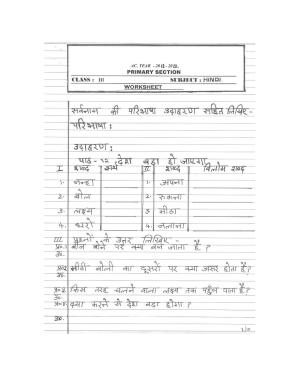 AC. YEAR - 2021-2022
PRIMARY SECTION
CLASS : III SUBJECT : HINDI
WORKSHEET
सर्वनाम की परिभाषा उदाहरण सहित लिखिए-
परिभाषा :
उदाहरण :
पाठ - १२ देश बड़ा हो जाएगा
I शब्द अर्थ II शब्द विलोम शब्द
1. नन्हा 1. अपना
2. बोल 2. रुकना
3. लक्ष्य 3. मीठा
4. 4.
III प्रश्नों के उत्तर लिखिए -
प्र०1. बीज बोने पर क्या बन जाता है ?
उ०
प्र०2. मीठी बोली का दूसरों पर क्या असर होता है ?
उ०
प्र०3. किस तरह चलने वाला लक्ष्य तक पहुँच पाता है ?
उ०
क्या करने से देश बड़ा होगा ?
उ०